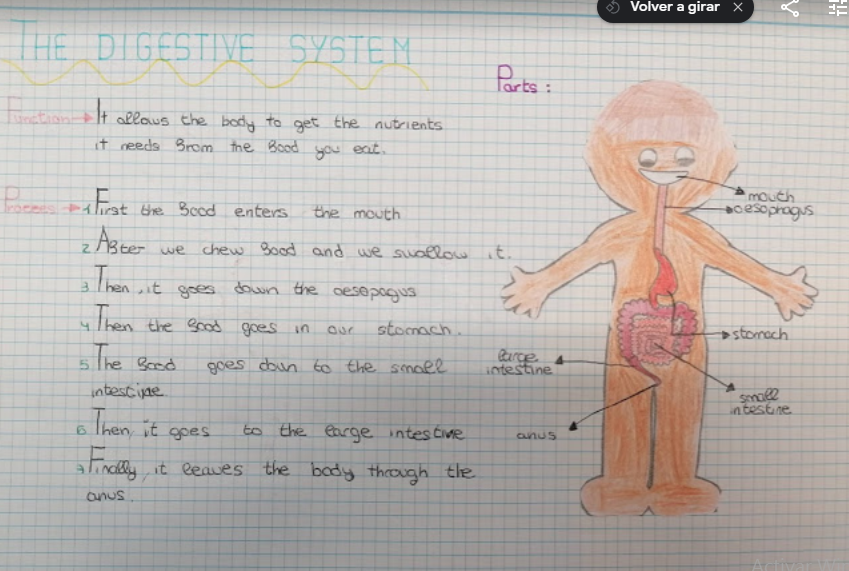 Volver a girar
THE DIGESTIVE SYSTEM
Parts:
Function → It allows the body to get the nutrients
it needs from the food you eat.
Process → 1 First the food enters the mouth
2 After we chew food and we swallow it.
3 Then, it goes down the oesopogus
4 Then the food goes in our stomach.
5 The food goes down to the small
intestine
6 Then, it goes to the large intestine
7 Finally, it leaves the body through the
anus.
mouth
oesophagus
stomach
large
intestine
small
intestine
anus